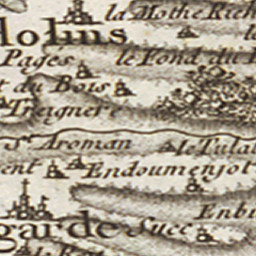 la Mothe Rich
lolins
Pagés
le Fond du
du Bois
Treignere
St Aroman
le Tulai
ent
Endoumenjot
Enbi
garde
Succ